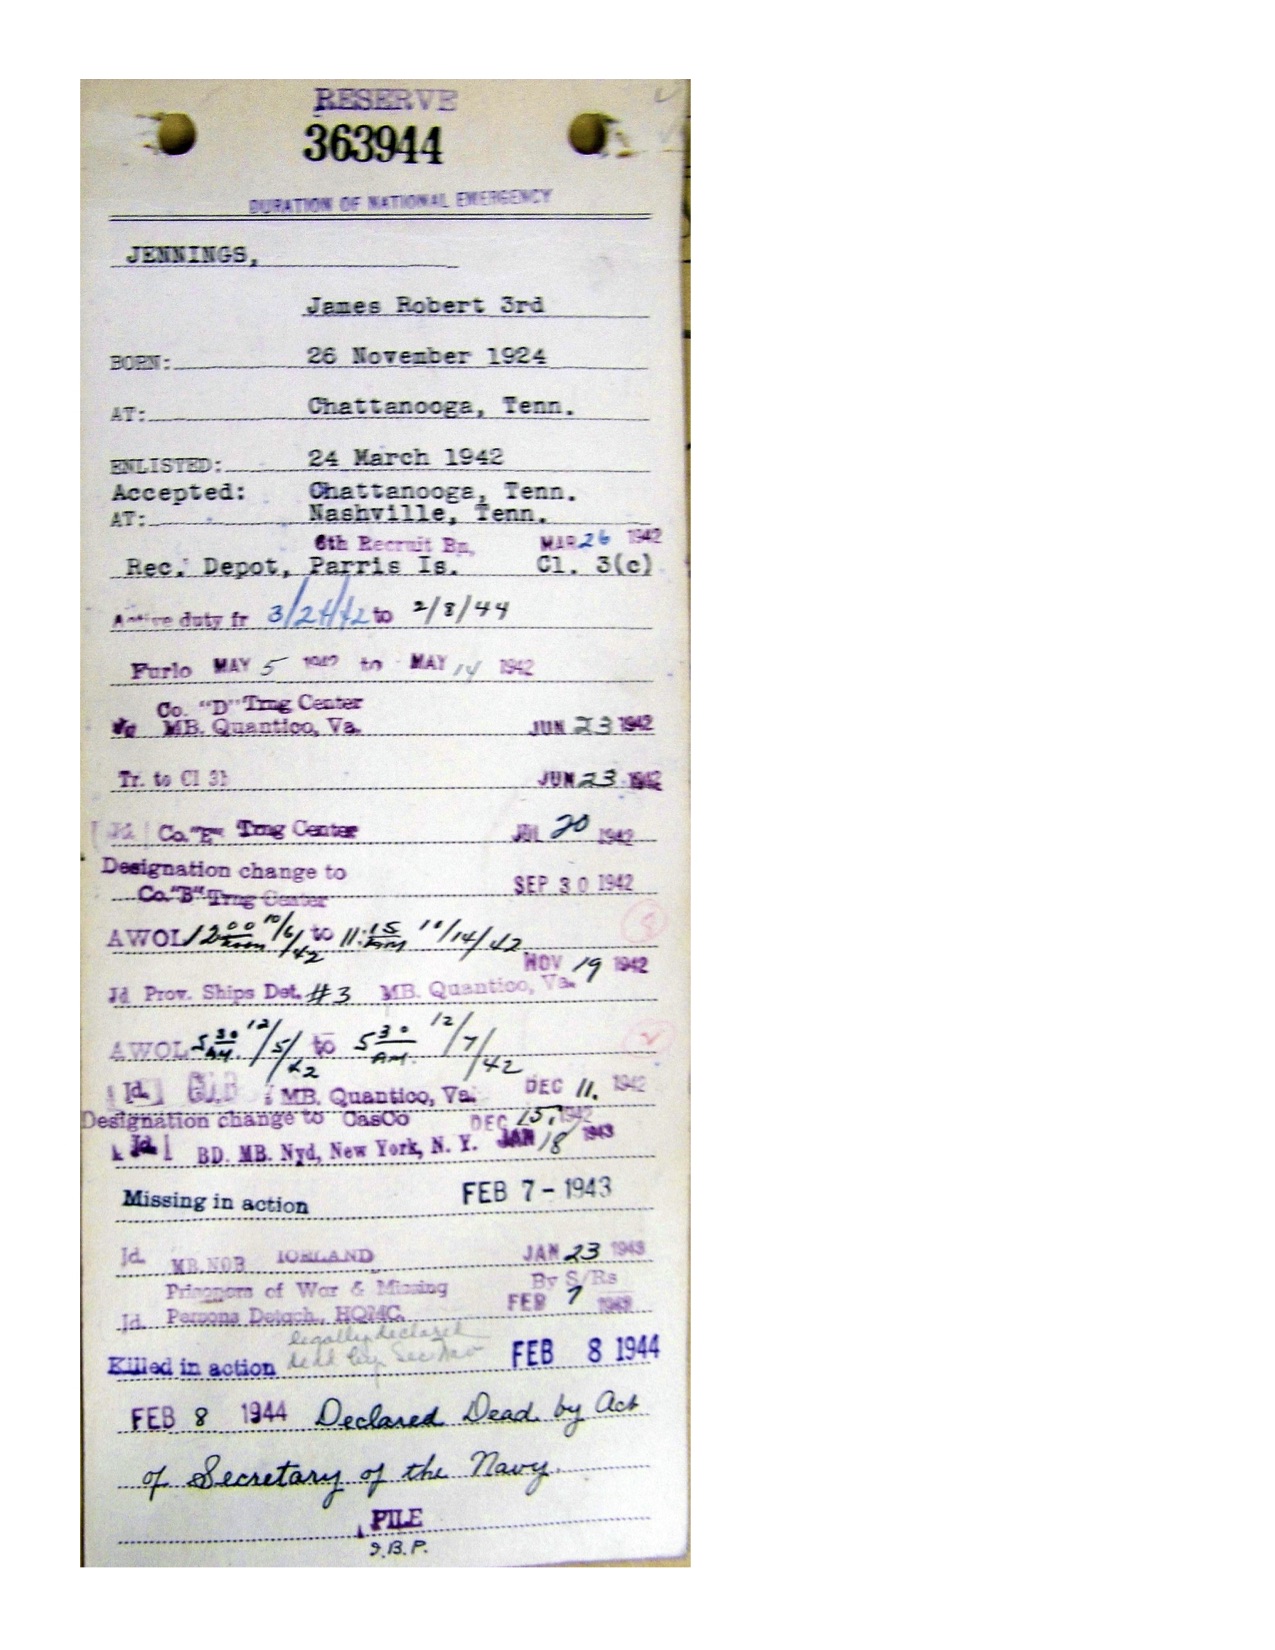 RESERVE
363944
DURATION OF NATIONAL EMERGENCY
JENNINGS,
James Robert 3rd
BORN: 26 November 1924
AT: Chattanooga, Tenn.
ENLISTED: 24 March 1942
Accepted: Chattanooga, Tenn.
AT: Nashville, Tenn.
6th Recruit Bn, MAR 26 1942
Rec. Depot, Parris Is. Cl. 3(c)
Active duty fr 3/24/42 to 2/8/44
Furlo MAY 5 1942 to MAY 14 1942
Co. "D" Trng Center
MB. Quantico, Va. JUN 23 1942
Tr. to Cl 3b JUN 23 1942
Jd. Co. "E" Trng Center JUL 20 1942
Designation change to
Co. "B" Trng Center SEP 30 1942
AWOL 12 00 noon 10/6/42 to 11:15 AM 10/14/42
NOV 19 1942
Jd Prov. Ships Det. #3 MB. Quantico, Va.
AWOL 5 30 AM. 12/5/42 to 5 30 AM. 12/7/42
Jd. MB. Quantico, Va. DEC 11. 1942
Designation change to CasCo DEC 15, 1942
Jd. BD. MB. Nyd, New York, N. Y. JAN 18 1943
Missing in action FEB 7 - 1943
Jd. MB. NOB ICELAND JAN 23 1943
Prisoners of War & Missing By S/Rs
Jd. Persons Detach., HQMC. FEB 7
legally declared
dead by Sec Nav
Killed in action FEB 8 1944
FEB 8 1944 Declared Dead by Act
of Secretary of the Navy.
FILE
J.B.P.